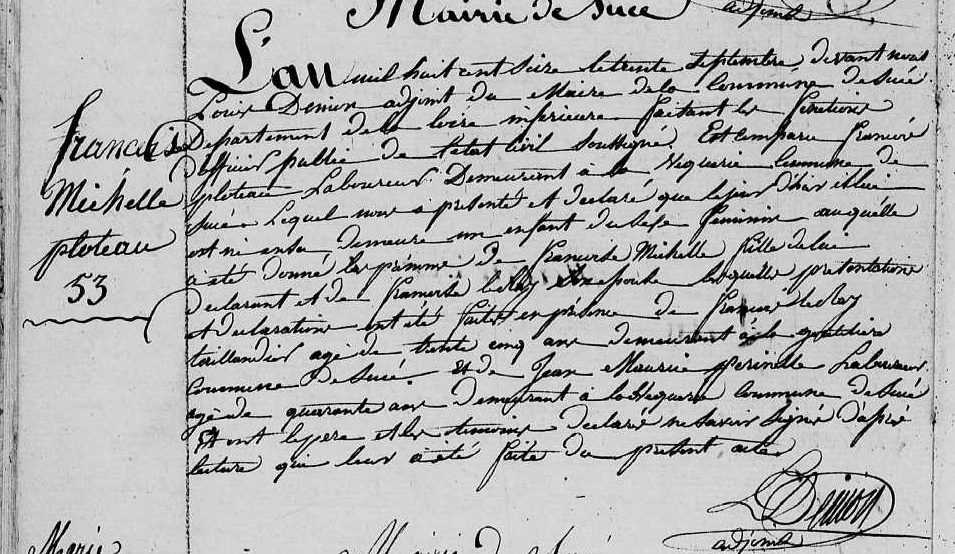 Mairie de Sucé
adjoint
L'an mil huit cent seize le trente Septembre devant nous
Louis Denion adjoint du Maire de la Commune de Sucé
Departement de la Loire inferieure faisant les fonctions
d'officier public de l'etat Civil soussigné. Est comparu françois
ploteau Laboureur Demeurant à la Commune de
Sucé Lequel nous a présenté et declaré que le jour d'hier il lui
est né en sa demeure un enfant du Sexe feminin auquelle
a été donné les prénoms de francoise Michelle fille de lui
declarant et de francoise Leray Son epouse lesquelles présentations
et declarations ont été faites en présence de francois Leray
taillandier agé de trente cinq ans demeurant à la
Commune de Sucé. Et de Jean Laboureur
agé de quarante ans demeurant à la Commune de Sucé
Et ont le pere et les temoins declaré ne savoir Signé d'aprè
lecture qui leur a été faite du présent acte
francoise
Michelle
ploteau
53
LDenion
adjoint
Marie
Mairie de Sucé